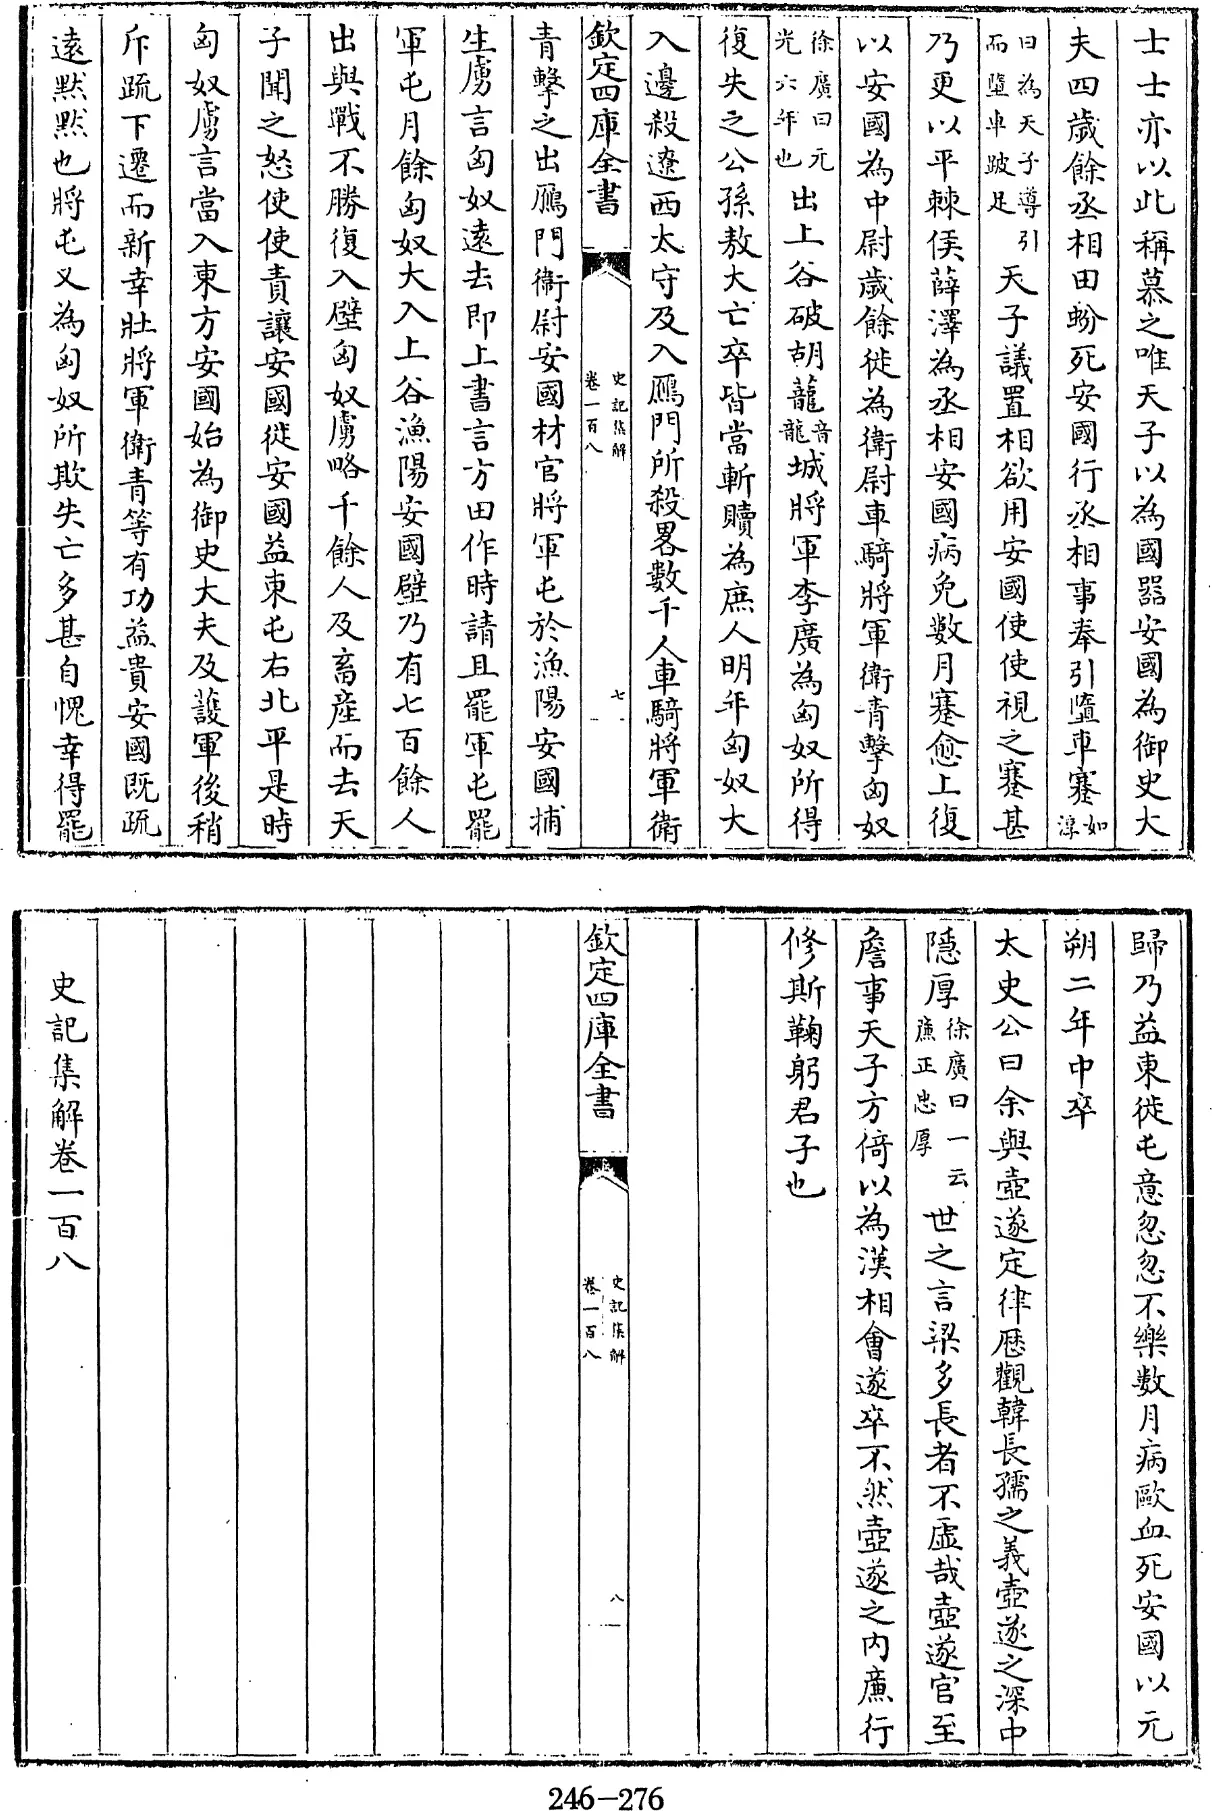 士士亦以此稱慕之唯天子以為國器安國為御史大
夫四歲餘丞相田蚡死安國行丞相事奉引墮車蹇如淳
曰為天子導引而墮車跛足天子議置相欲用安國使使視之蹇甚
乃更以平棘侯薛澤為丞相安國病免數月蹇愈上復
以安國為中尉歲餘徙為衛尉車騎將軍衛青擊匈奴
徐廣曰元光六年也出上谷破胡蘢音龍城將軍李廣為匈奴所得
復失之公孫敖大亡卒皆當斬贖為庶人明年匈奴大
入邊殺遼西太守及入鴈門所殺畧數千人車騎將軍衛
欽定四庫全書
史記集解
卷一百八
七
青擊之出鴈門衛尉安國材官將軍屯於漁陽安國捕
生虜言匈奴遠去即上書言方田作時請且罷軍屯罷
軍屯月餘匈奴大入上谷漁陽安國壁乃有七百餘人
出與戰不勝復入壁匈奴虜略千餘人及畜產而去天
子聞之怒使使責讓安國徙安國益東屯右北平是時
匈奴虜言當入東方安國始為御史大夫及護軍後稍
斥疏下遷而新幸壯將軍衛青等有功益貴安國既疏
遠默默也將屯又為匈奴所欺失亡多甚自愧幸得罷
歸乃益東徙屯意忽忽不樂數月病歐血死安國以元
朔二年中卒
太史公曰余與壺遂定律歷觀韓長孺之義壺遂之深中
隱厚徐廣曰一云廉正忠厚世之言梁多長者不虛哉壺遂官至
詹事天子方倚以為漢相會遂卒不然壺遂之內廉行
修斯鞠躬君子也
欽定四庫全書
史記集解
卷一百八
八
史記集解卷一百八
246-276